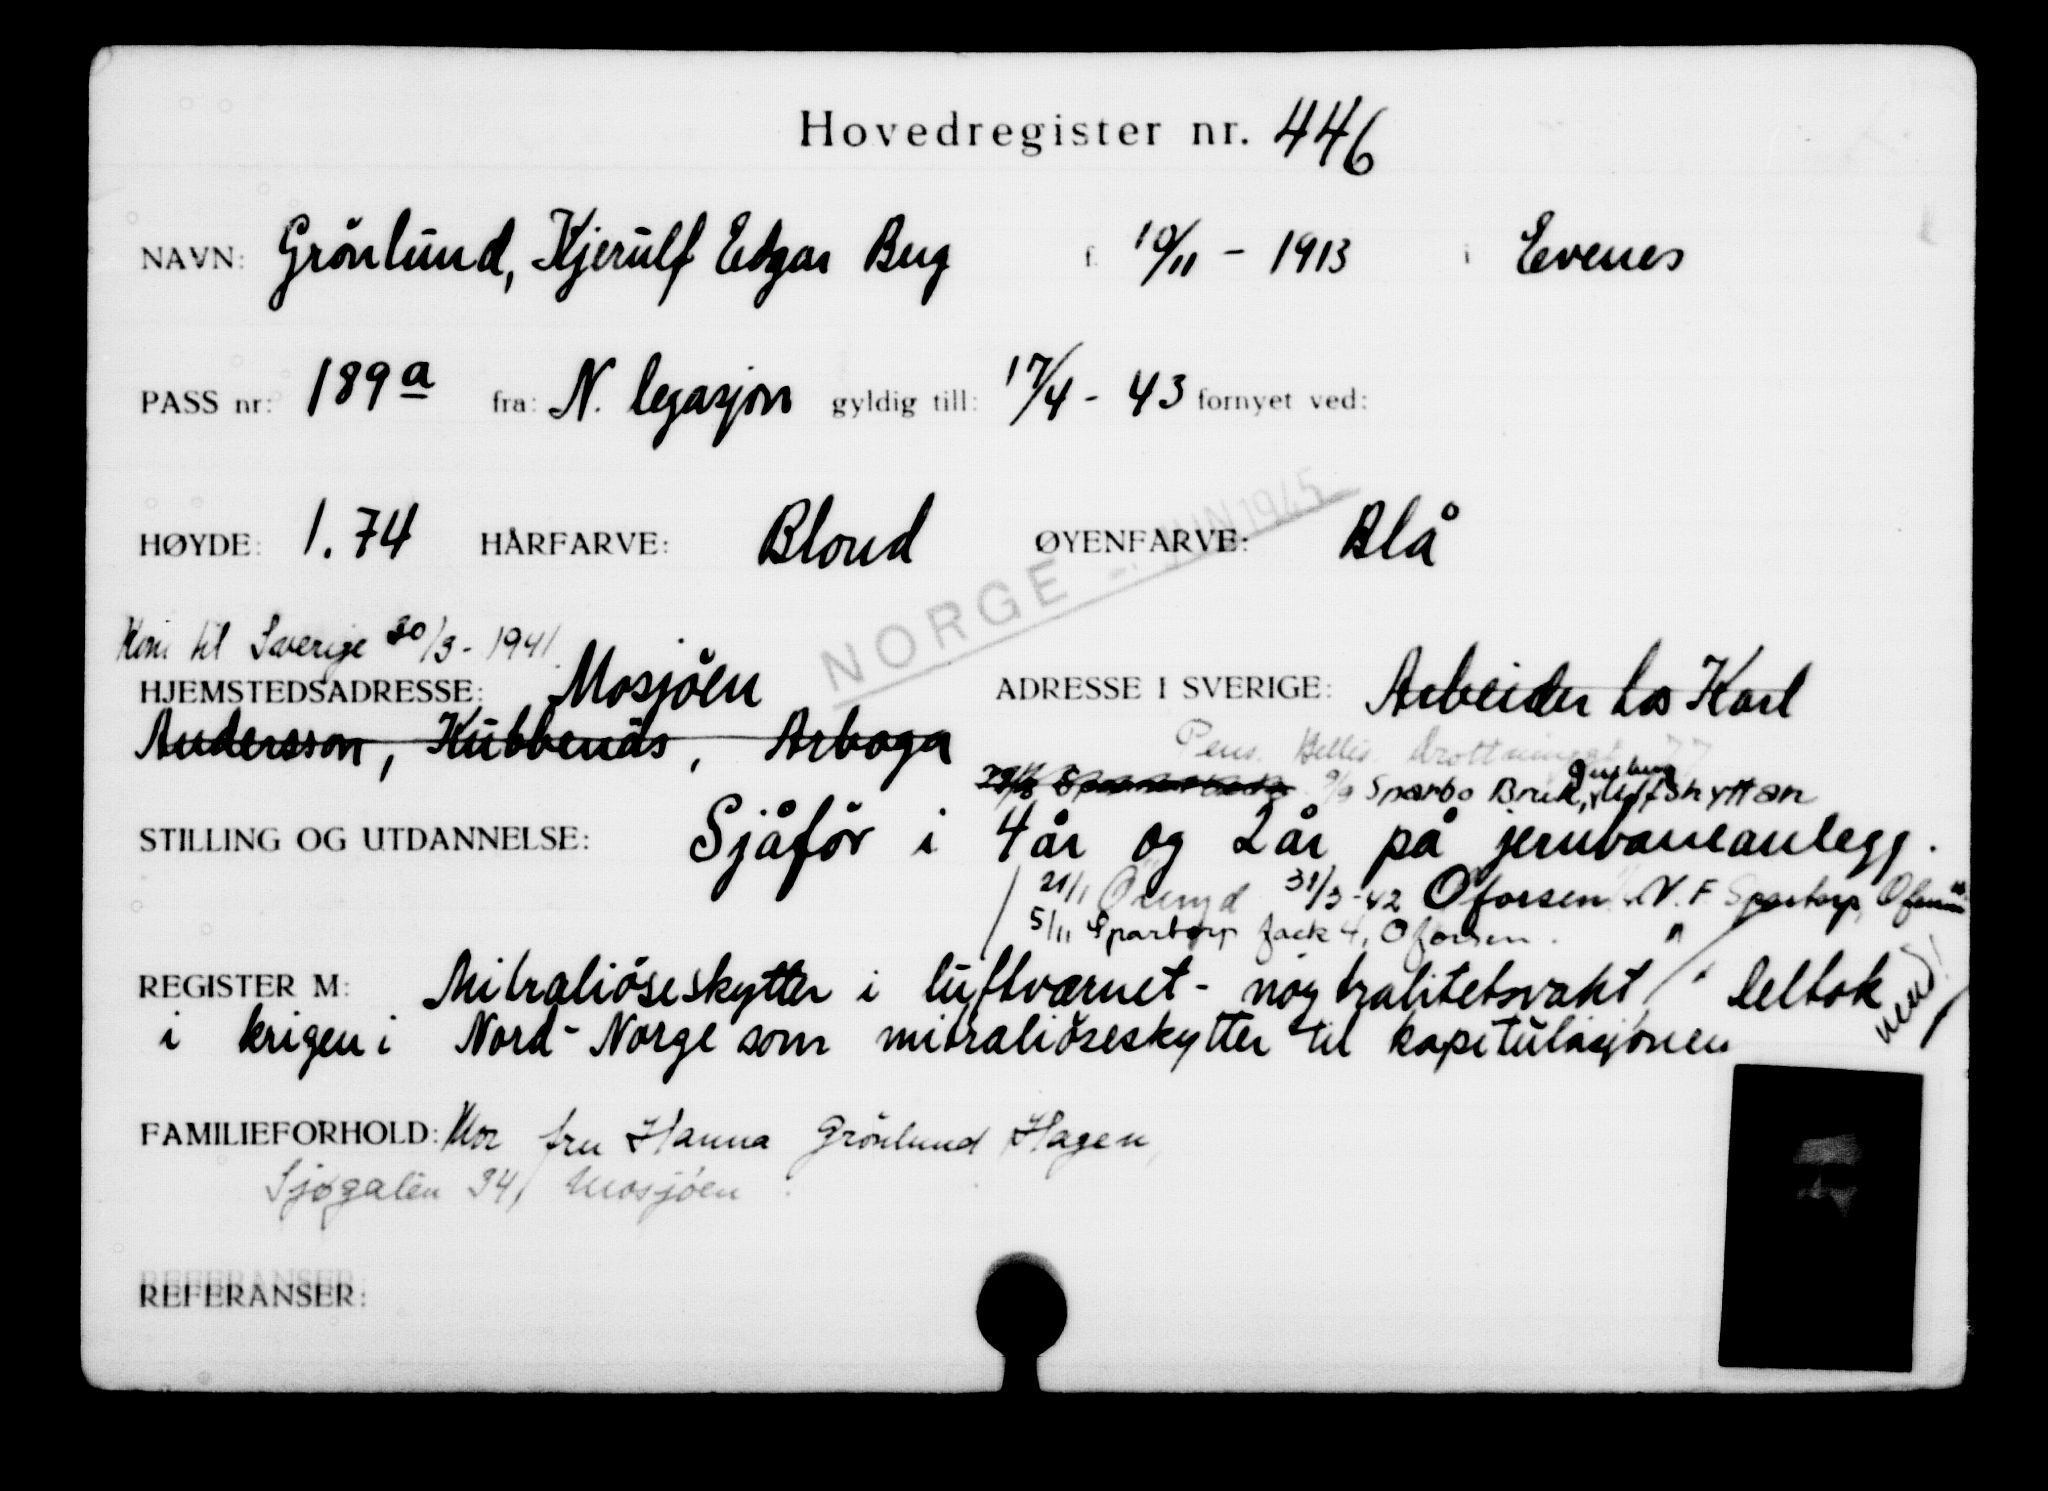 Hovedregister nr. 446
NAVN: Grönlund, Kjerulf Edgar Berg f. 10/11 - 1913 i Evenes
PASS nr: 189a fra: N. legasjon gyldig till: 17/4 - 43 fornyet ved:
HØYDE: 1.74 HÅRFARVE: Blond ØYENFARVE: Blå
NORGE - JUN 1945
Kom til Sverige 30/3 - 1941.
HJEMSTEDSADRESSE: Mosjöen ADRESSE I SVERIGE: Arbeider hos Karl
Andersson, Kubbenäs, Arboga
Pens. Hellis. Drottninggt. 77
9/9 Sparbo Bruk, skyttan
STILLING OG UTDANNELSE: Sjåför i 4 år og 2 år på jernbaneanlegg.
21/1 31/3-42 Oforsen N.F Spartorp,
5/11 Spartorp fack 4, Oforsen.
REGISTER M: Mitraliöseskytter i luftvärnet - nöytralitetsvakt Deltok med!
i krigen i Nord-Norge som mitraliöseskytter til kapitulasjonen
FAMILIEFORHOLD: Mor fru Hanna Grönlund Hagen,
Sjøgaten 34, Mosjöen.
REFERANSER:
REFERANSER: